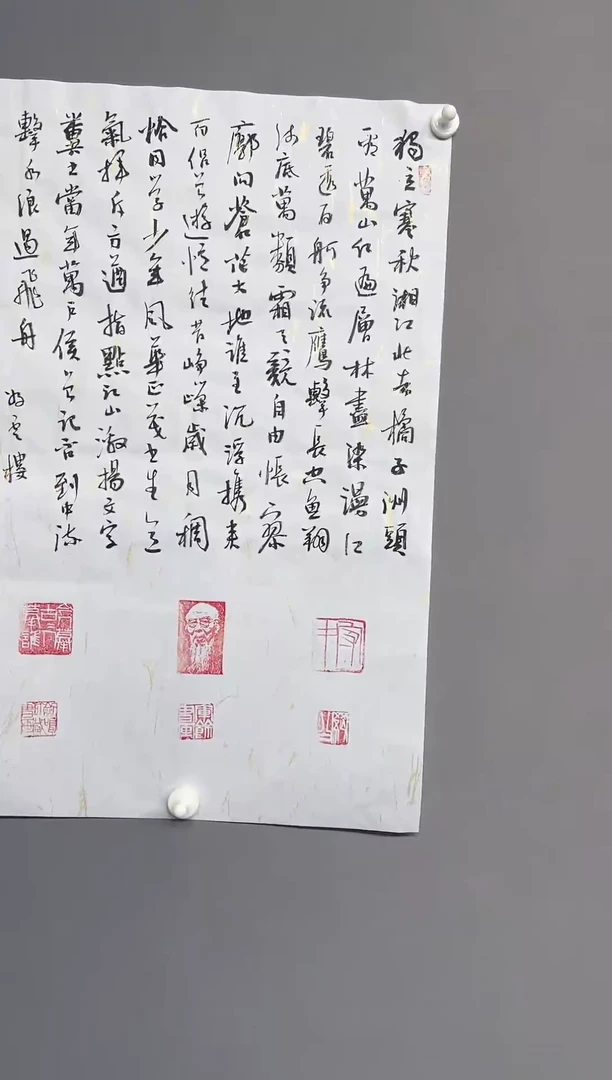 獨立寒秋湘江北去橘子洲頭
看萬山红遍層林盡染漫江
碧透百舸争流鷹擊長空魚翔
浅底萬類霜天競自由悵寥
廓问蒼茫大地谁主沉浮携来
百侣曾遊憶往昔崢嶸歲月稠
恰同学少年風華正茂书生意
氣揮斥方遒指點江山激揚文字
糞土當年萬户侯曾记否到中流
擊水浪遏飛舟